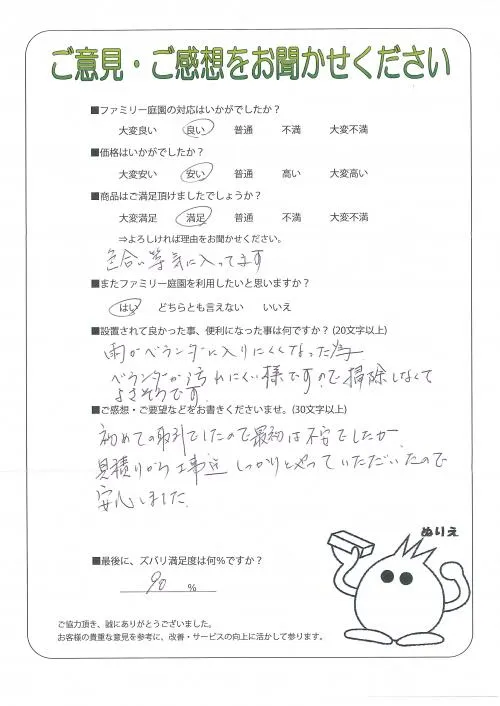 ご意見・ご感想をお聞かせください
■ファミリー庭園の対応はいかがでしたか？
大変良い 良い 普通 不満 大変不満
■価格はいかがでしたか？
大変安い 安い 普通 高い 大変高い
■商品はご満足頂けましたでしょうか？
大変満足 満足 普通 不満 大変不満
⇒よろしければ理由をお聞かせください。
色合い等気に入ってます
■またファミリー庭園を利用したいと思いますか？
はい どちらとも言えない いいえ
■設置されて良かった事、便利になった事は何ですか？(20文字以上)
雨がベランダーに入りにくくなった為
ベランダーが汚れにくい様ですので掃除しなくて
よさそうです
■ご感想・ご要望などをお書きくださいませ。(30文字以上)
初めての取引でしたので最初は不安でしたが、
見積りから工事迄しっかりとやっていただいたので
安心しました。
ぬりえ
■最後に、ズバリ満足度は何％ですか？
90 ％
ご協力頂き、誠にありがとうございました。
お客様の貴重な意見を参考に、改善・サービスの向上に活かして参ります。